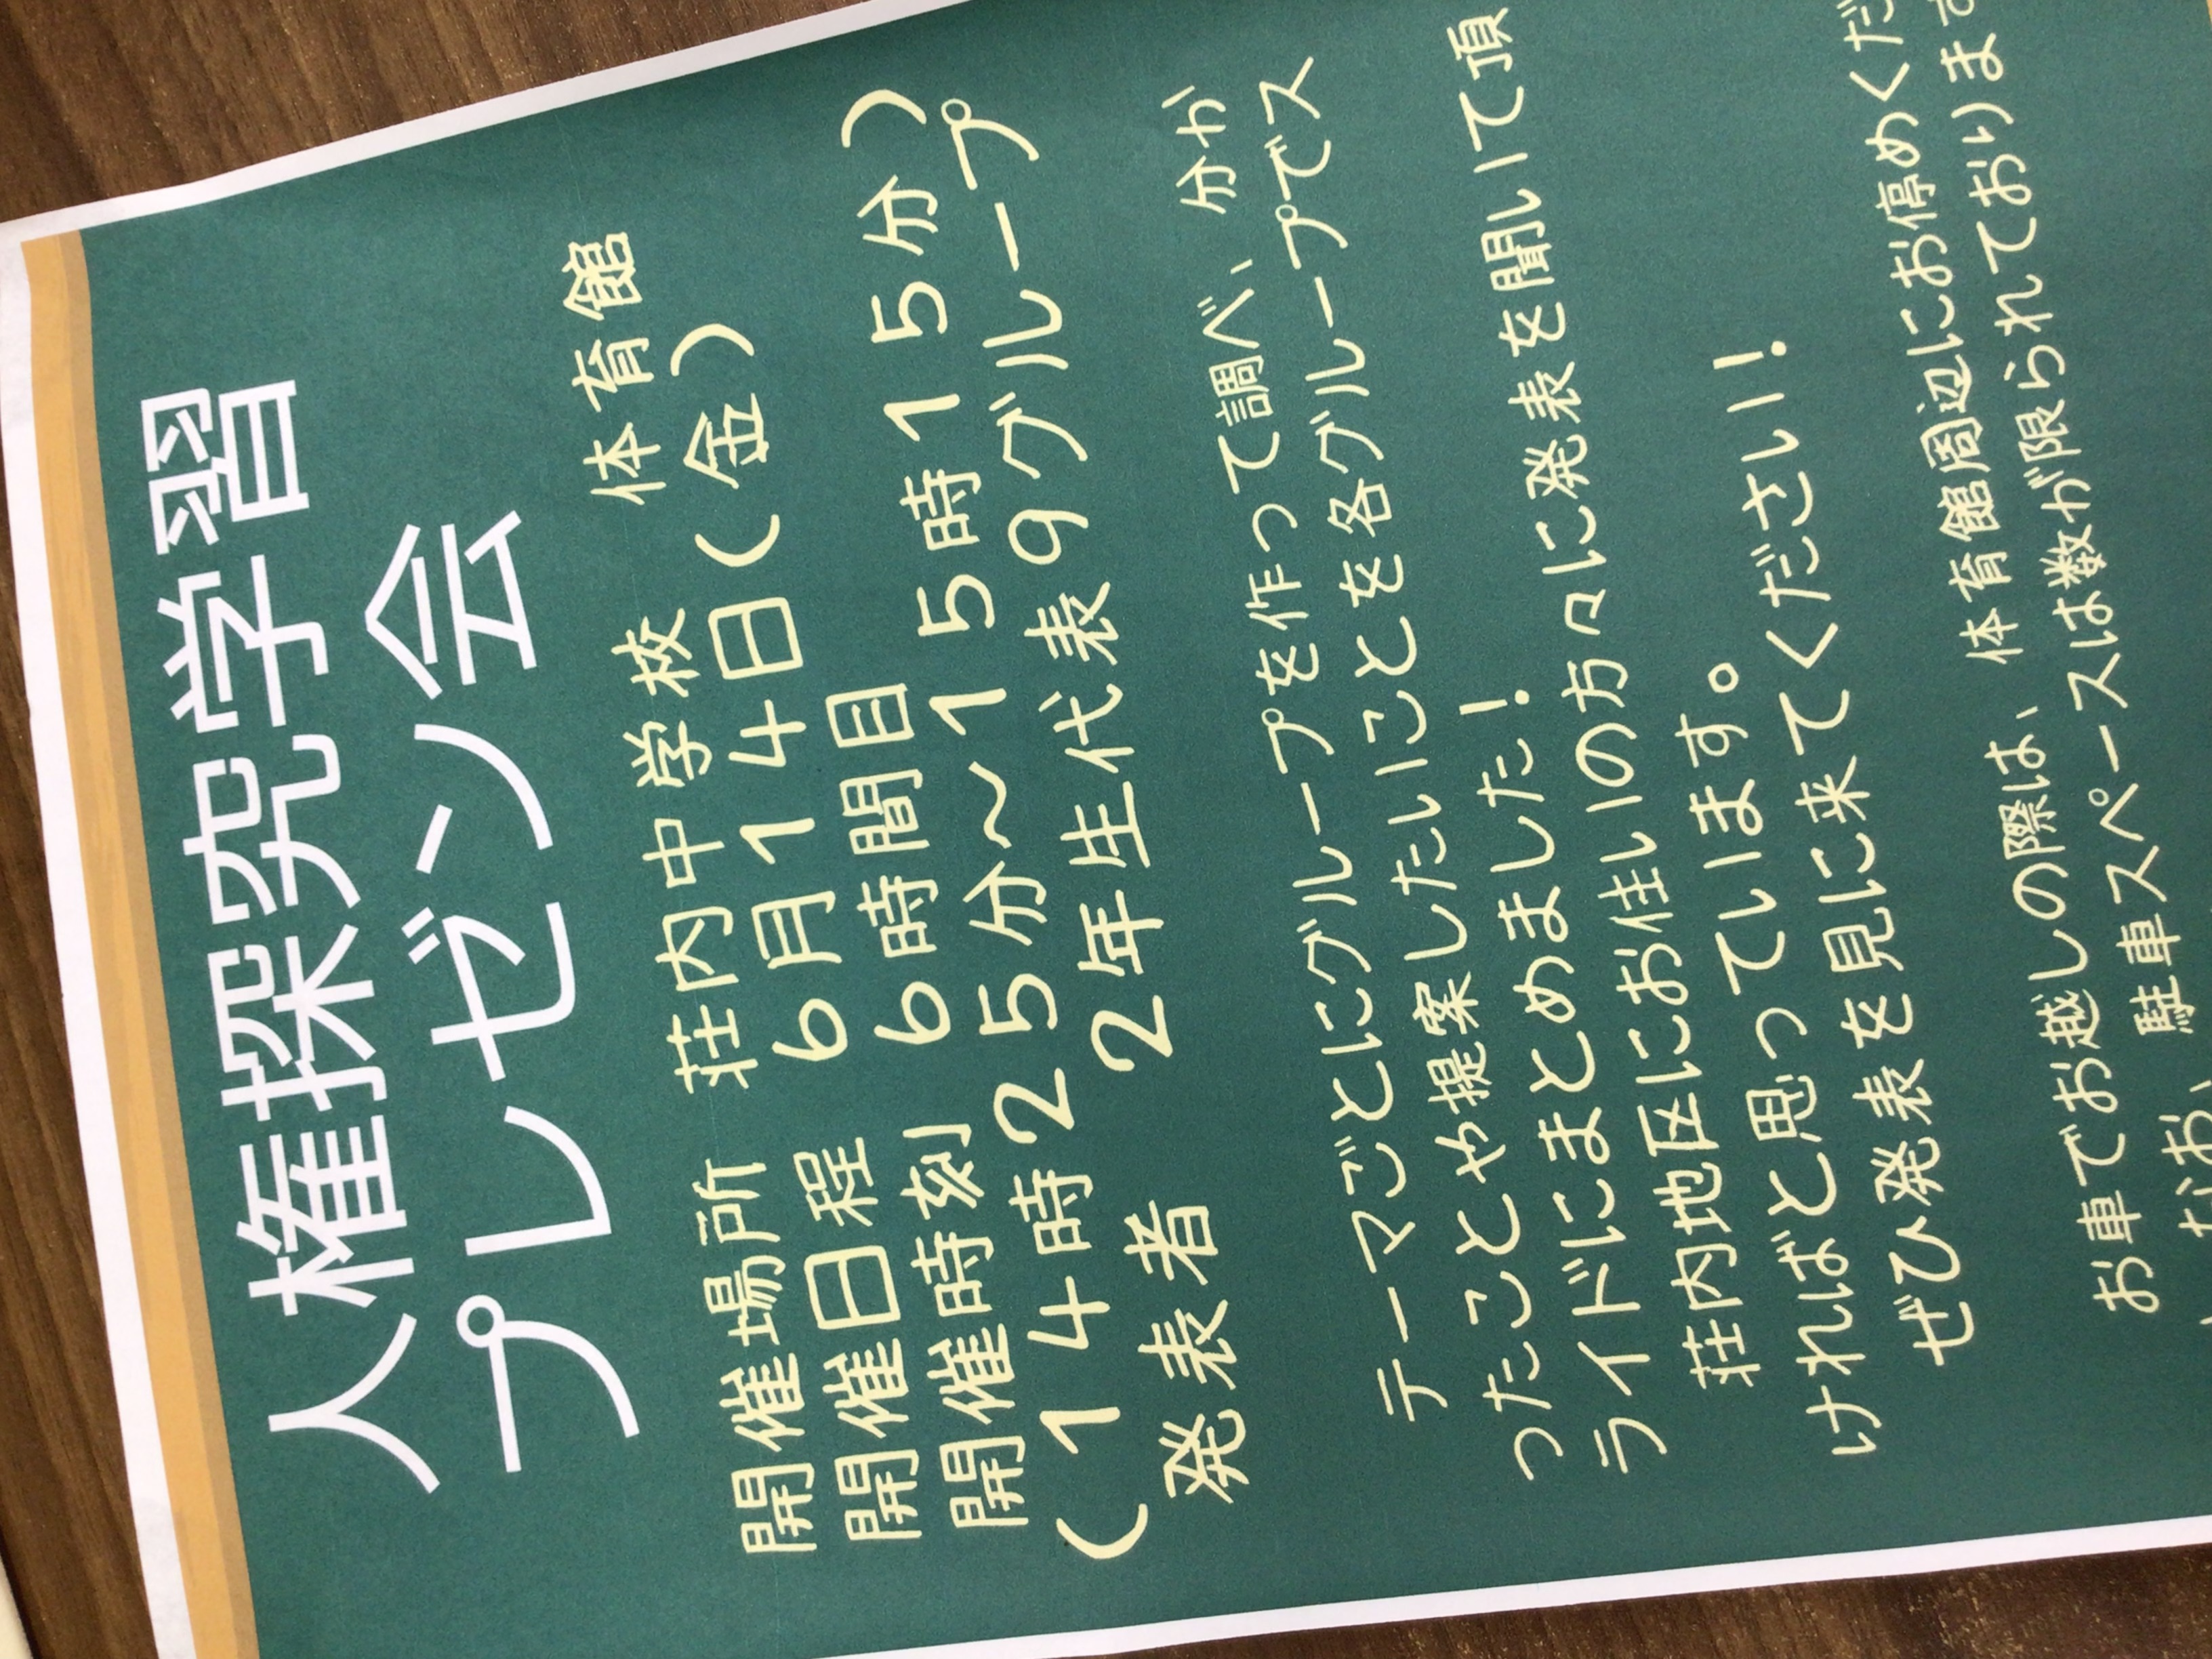 人権探究学習
プレゼン会
開催場所　荘内中学校　体育館
開催日程　６月１４日(金)
開催時刻　６時間目
(１４時２５分～１５時１５分)
発表者　２年生代表９グループ
テーマごとにグループを作って調べ、分か
ったことや提案したいことを各グループでス
ライドにまとめました！
荘内地区にお住いの方々に発表を聞いて頂
ければと思っています。
ぜひ発表を見に来てください！
お車でお越しの際は、体育館周辺にお停めくだ
なお、駐車スペースは数が限られております